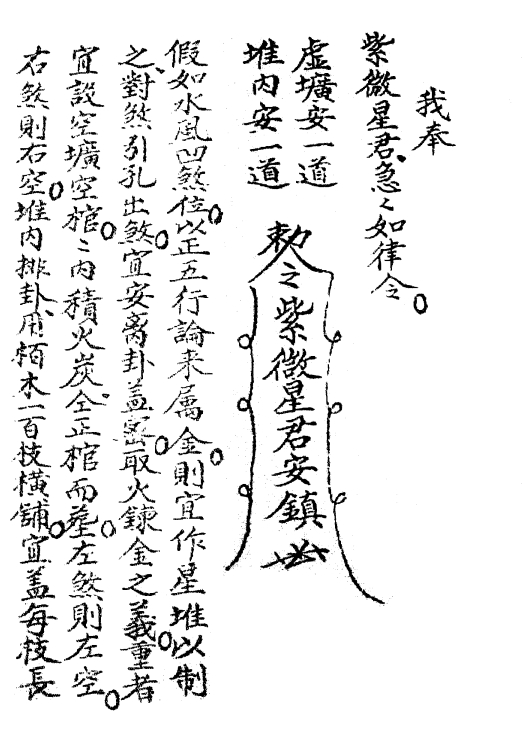 我奉
紫微星君急〻如律令。
虛壙安一道
堆內安一道
勅令紫微星君安鎮
假如水風凹煞位。以正五行論来属金。則宜作星堆以制
之、對煞引孔出煞。宜安离卦盖密。取火鍊金之義。重者
宜設空壙空棺。〻內積火炭仝正棺而塟。左煞則左空。
右煞則右空。堆內排卦、用栢木一百枝橫舖。宜盖每枝長